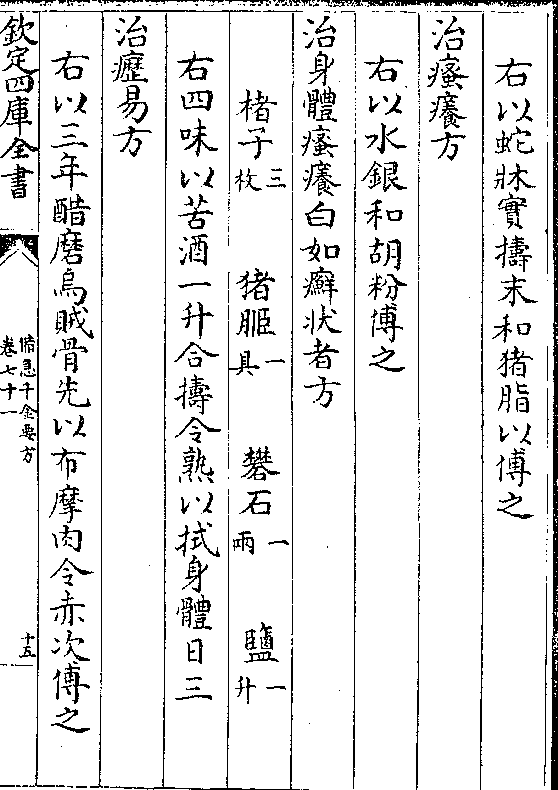 右以蛇牀實擣末和猪脂以傅之
治瘙癢方
右以水銀和胡粉傅之
治身體瘙癢白如癬状者方
楮子三枚 猪胵一具 礬石一兩 鹽一升
右四味以苦酒一升合擣令熟以拭身體日三
治癧易方
右以三年醋磨烏賊骨先以布摩肉令赤次傅之
欽定四庫全書
備急千金要方
卷七十一
十五